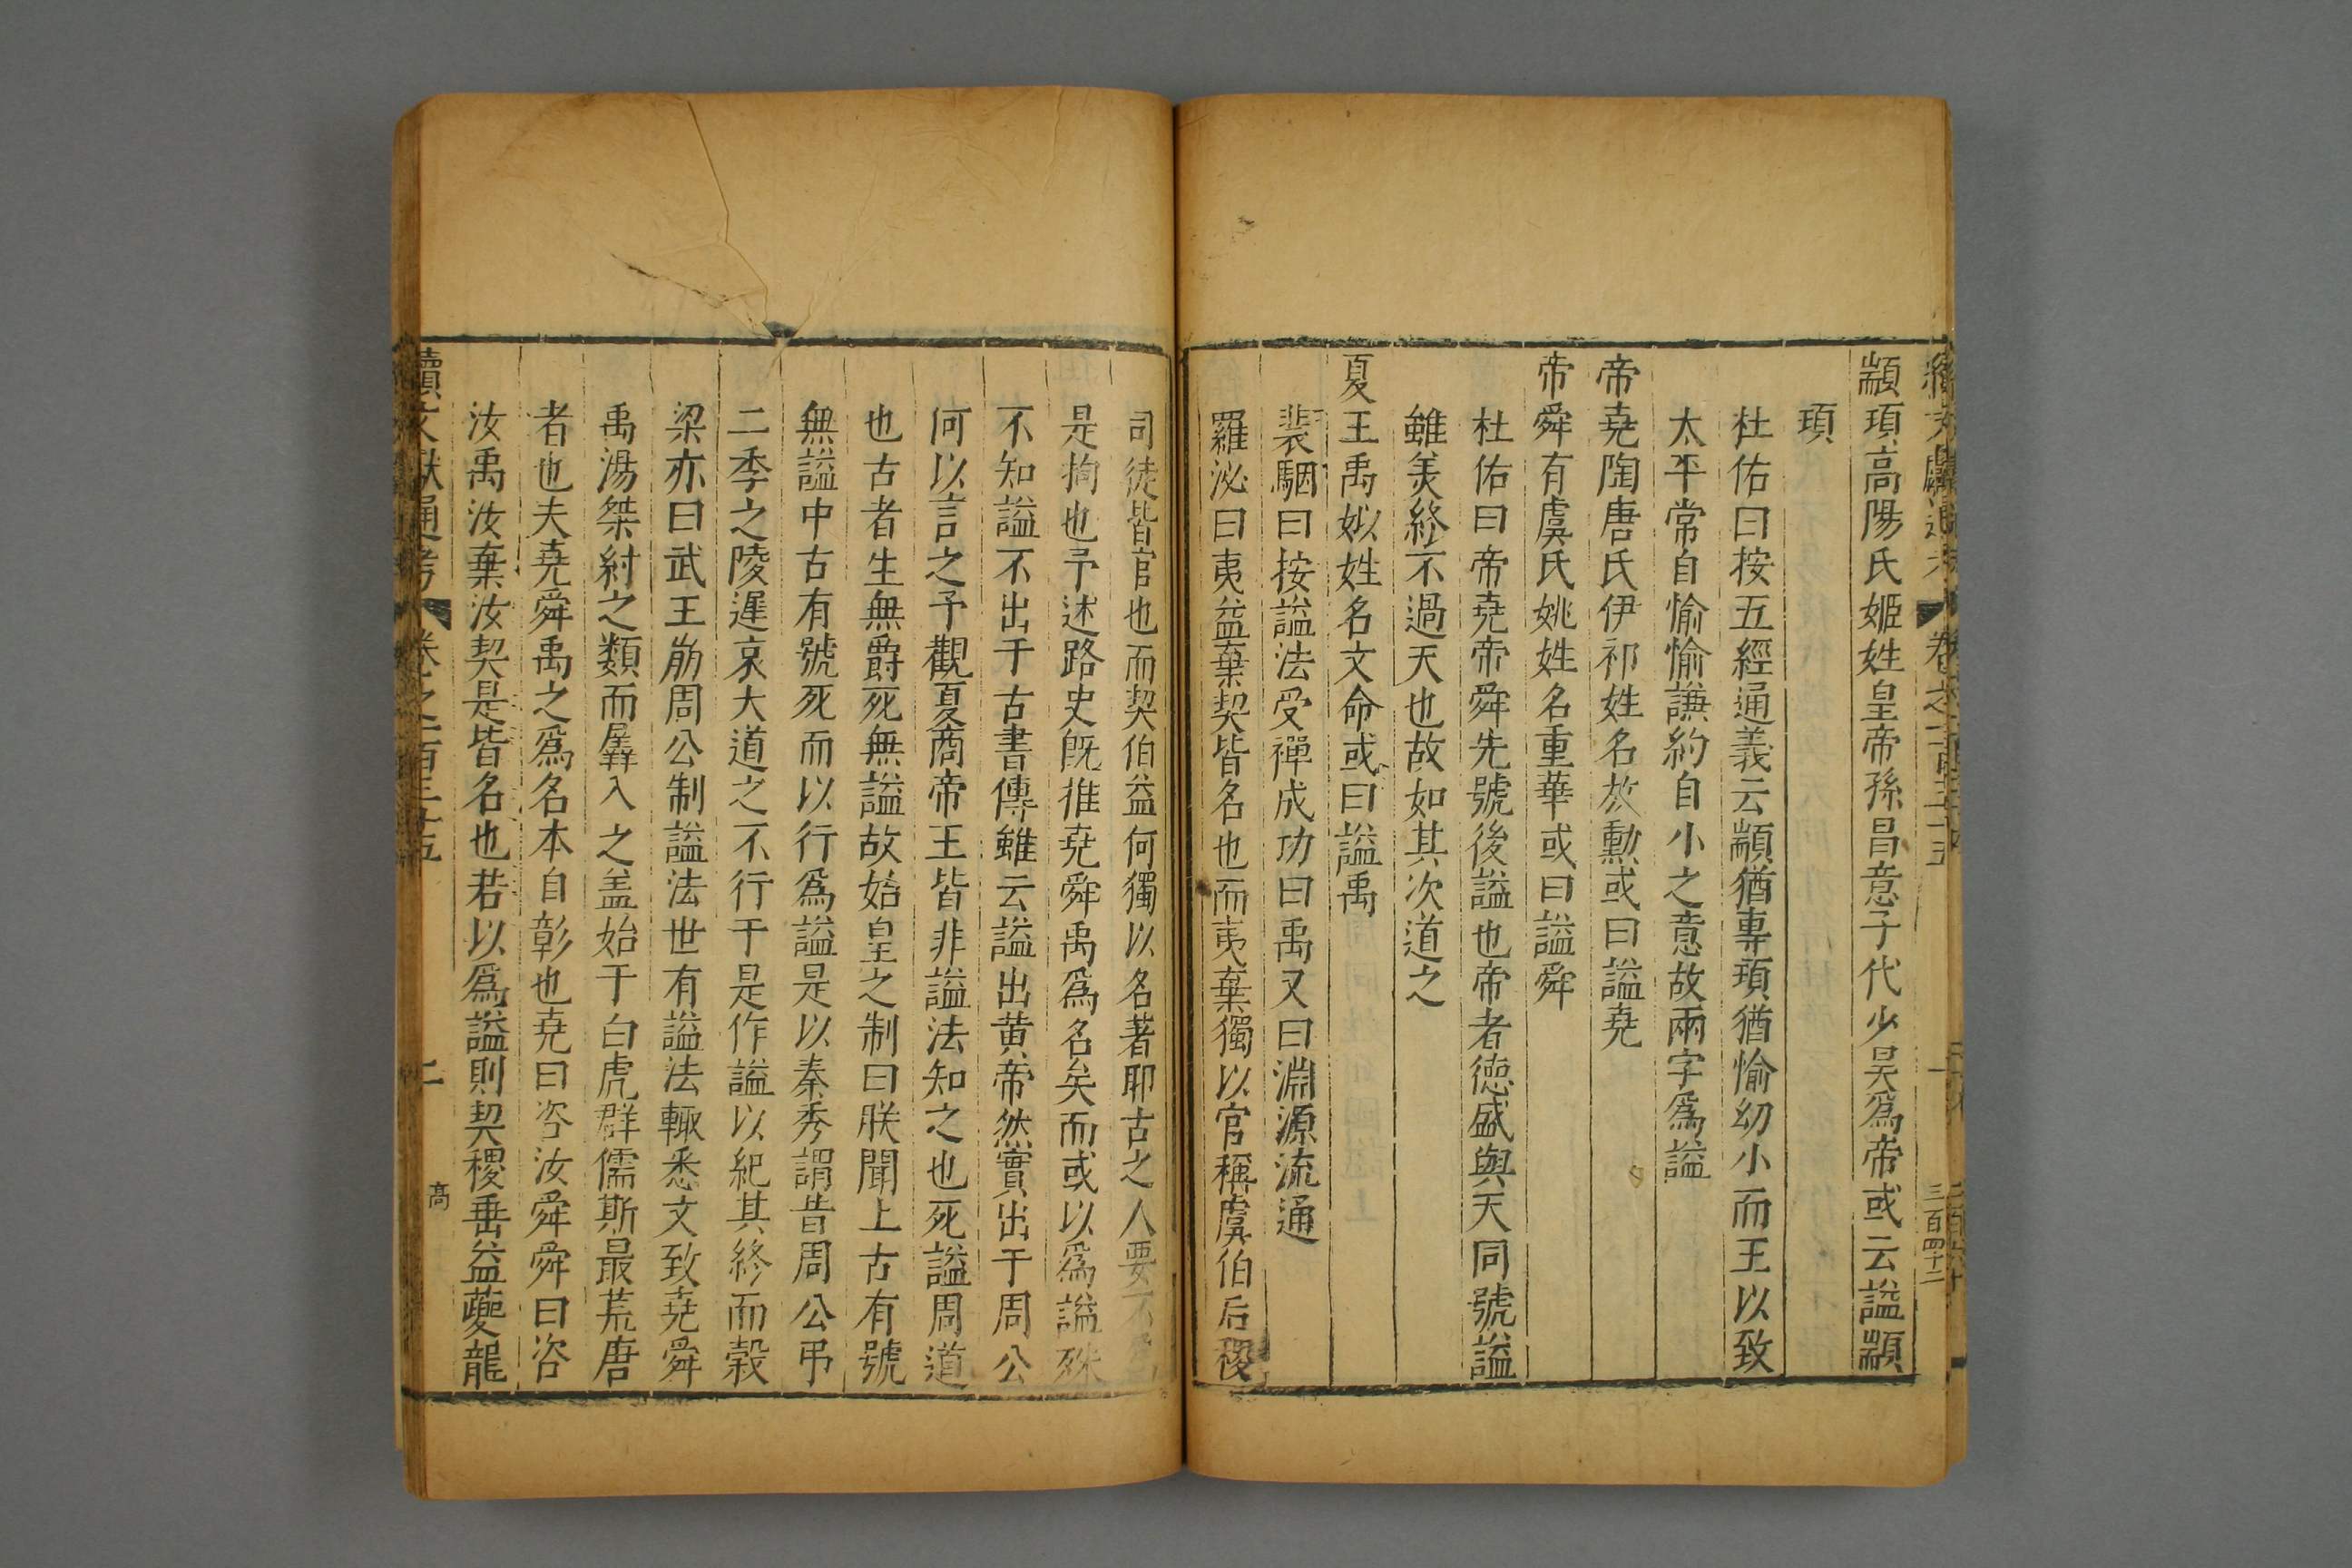 續文獻通考 卷之一百三十五 一 三百四十二
顓頊高陽氏姬姓皇帝孫昌意子代少昊爲帝或云謚顓
頊
杜佑曰按五經通義云顓猶專頊猶愉幼小而王以致
太平常自愉愉謙約自小之意故兩字爲謚
帝堯陶唐氏伊祁姓名放勳或曰謚堯
帝舜有虞氏姚姓名重華或曰謚舜
杜佑曰帝堯帝舜先號後謚也帝者德盛與天同號謚
雖美終不過天也故如其次道之
夏王禹姒姓名文命或曰謚禹
裴駰曰按謚法受禪成功曰禹又曰淵源流通
羅泌曰夷益棄契皆名也而夷棄獨以官稱虞伯后稷
司徒皆官也而契伯益何獨以名著耶古之人要不
是拘也予述路史旣推堯舜禹爲名矣而或以爲謚殊
不知謚不出于古書傳雖云謚出黄帝然實出于周公
何以言之予觀夏商帝王皆非謚法知之也死謚周道
也古者生無爵死無謚故始皇之制曰朕聞上古有號
無謚中古有號死而以行爲謚是以秦秀謂昔周公弔
二季之陵遲哀大道之不行于是作謚以紀其終而榖
梁亦曰武王崩周公制謚法世有謚法輙悉文致堯舜
禹湯桀紂之類而羼入之盖始于白虎群儒斯最荒唐
者也夫堯舜禹之爲名本自彰也堯曰咨汝舜舜曰咨
汝禹汝棄汝契是皆名也若以爲謚則契稷垂益夔龍
續文獻通考 卷之一百三十五 二 高